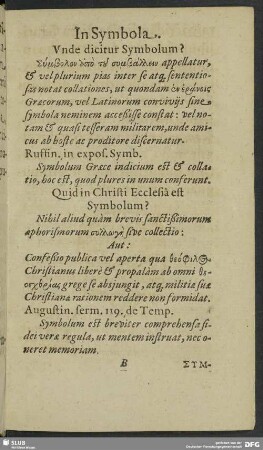 In Symbola.
Vnde dicitur Symbolum?
Σύμβολον ἀπὸ τοῦ συμβάλλειν appellatur,
& vel plurium pias inter se atq; sententio-
sas notat collationes, ut quondam ἐν ἐράνοις
Græcorum, vel Latinorum convivijs sine
symbola neminem accessisse constat: vel no-
tam & quasi tesseram militarem, unde ami-
cus ab hoste ac proditore discernatur.
Ruffin. in expos. Symb.
Symbolum Græce indicium est & colla-
tio, hoc est, quod plures in unum conferunt.
Quid in Christi Ecclesiâ est
Symbolum?
Nihil aliud quàm brevis sanctissimorum
aphorismorum συλλογὴ sive collectio:
Aut:
Confessio publica vel aperta qua
Christianus liberè & propalàm ab omni
grege se absjungit, atq; militiæ suæ
Christiana rationem reddere non formidat.
Augustin. serm. 119. de Temp.
Symbolum est breviter comprehensa fi-
dei veræ regula, ut mentem instruat, nec o-
neret memoriam.
B ΣΥΜ-
SLUB
Wir führen Wissen.
gefördert von der
Deutschen Forschungsgemeinschaft
DFG